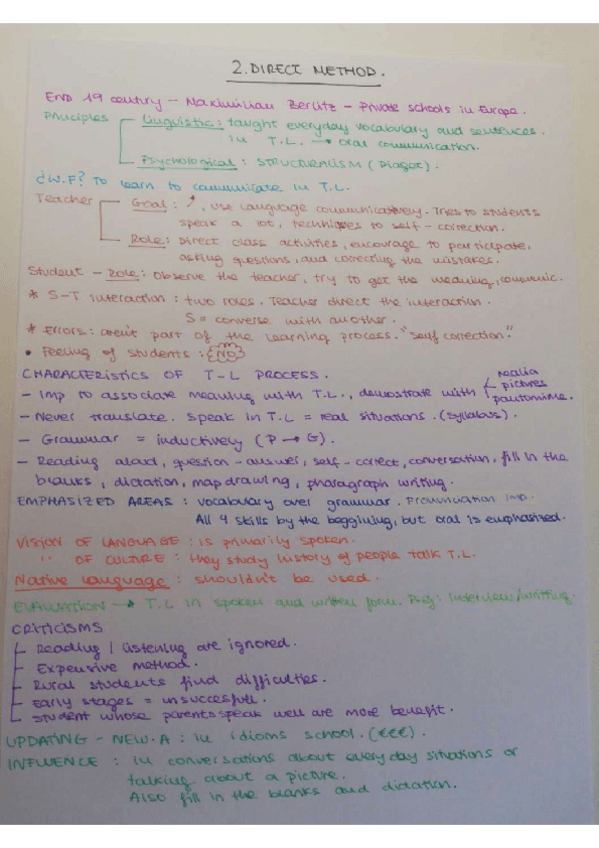 2. DIRECT METHOD.
END 19 century - Maximilian Berlitz - Private schools in Europe.
Principles Linguistic: taught everyday vocabulary and sentences.
in T.L. → oral communication.
Psychological: STRUCTURALISM (Piaget).
¿W.F? To learn to communicate in T.L.
Teacher Goal: , use language communicatively. Tries to students
speak a lot, techniques to self-correction.
Role: Direct class activities, encourage to participate,
asking questions, and correcting the mistakes.
Student - Role: Observe the teacher, try to get the meaning, communic.
* S-T interaction: two roles. Teacher direct the interaction.
S = converse with another.
* Errors: aren't part of the learning process. "Self correction."
• Feeling of students: {NO}
CHARACTERISTICS OF T-L PROCESS.
- Imp to associate meaning with T.L., demostrate with realia
pictures
pantomime.
- Never translate. Speak in T.L = real situations. (syllabus).
- Grammar = inductively (P → G).
- Reading aloud, question-answer, self-correct, conversation, fill in the
blanks, dictation, map drawing, pharagraph writing.
EMPHASIZED AREAS: vocabulary over grammar. Pronunciation imp.
All 4 skills by the beggining, but oral is emphasized.
Vision OF LANGUAGE: is primarily spoken.
" OF CULTURE: they study history of people talk T.L.
Native language: shouldn't be used.
EVALUATION → T.L in spoken and written form. Interview/writting.
CRITICISMS
- Reading / listening are ignored.
- Expensive method.
- Rural students find difficulties.
- Early stages = unsuccesfull.
- Student whose parents speak well are more benefit.
UPDATING - NEW.A: in idioms school. (€€€).
INFLUENCE: in conversations about everyday situations or
talking about a picture.
Also fill in the blanks and dictation.